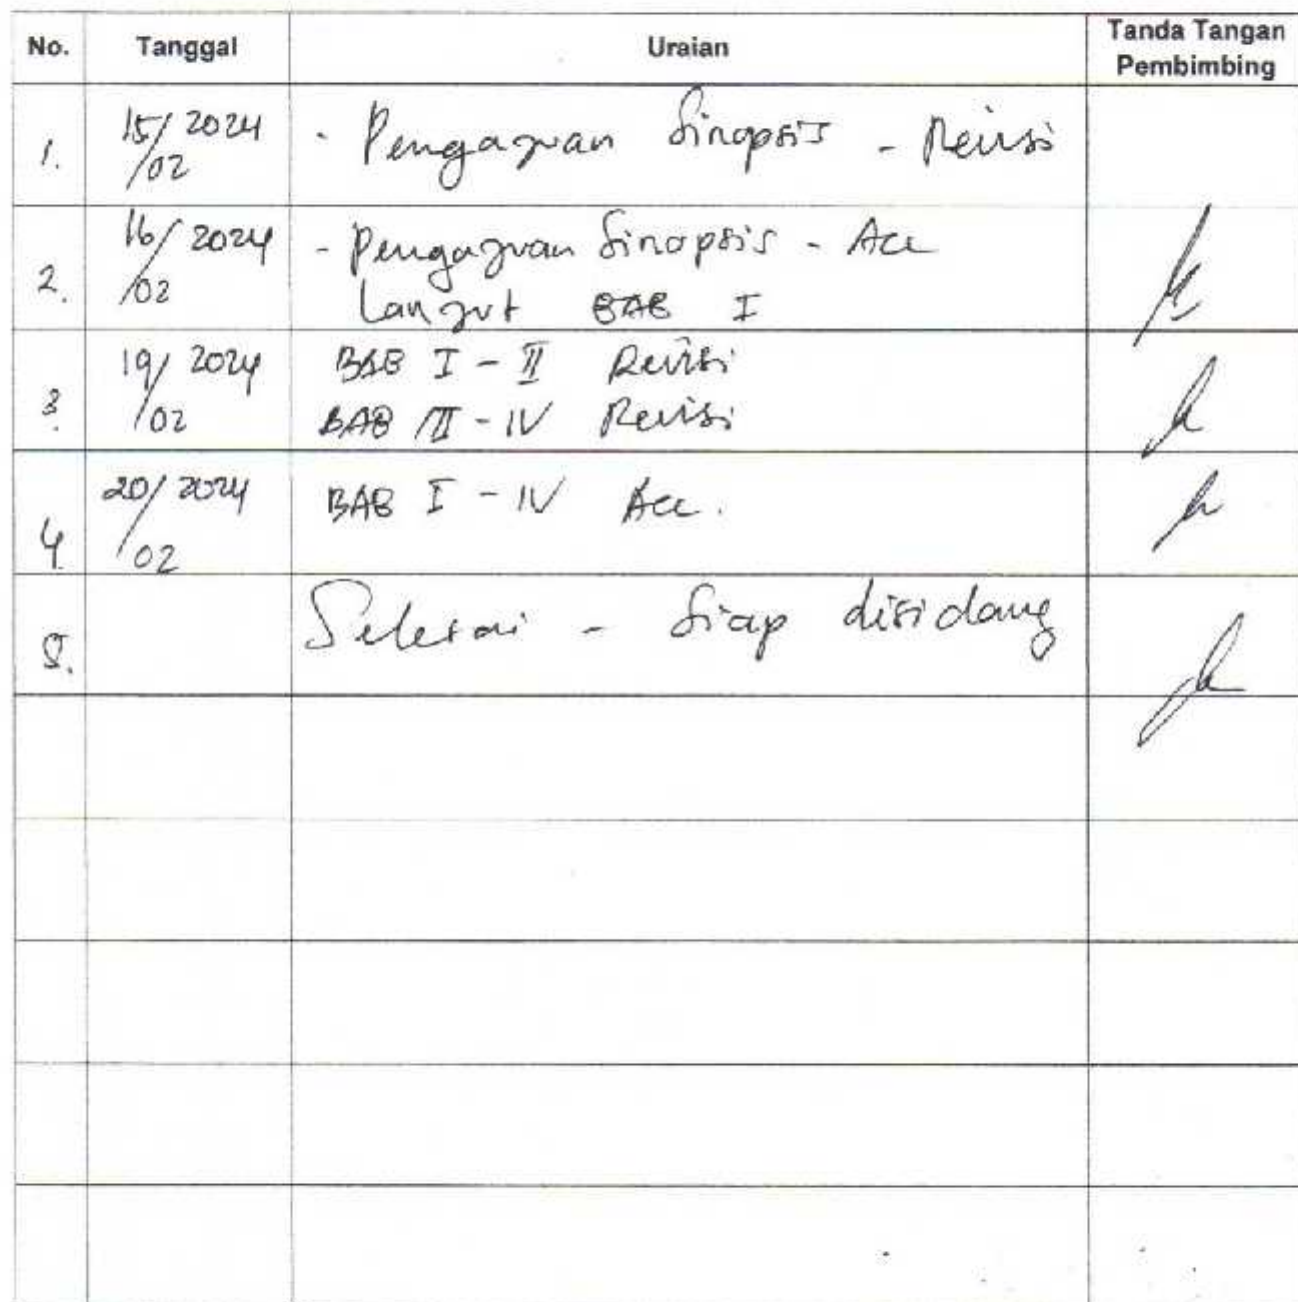 No. Tanggal Uraian Tanda Tangan Pembimbing
1. 15/02/2024 - Pengajuan Sinopsis - Revisi
2. 16/02/2024 - Pengajuan Sinopsis - Acc
Lanjut BAB I
3. 19/02/2024 BAB I - II Revisi
BAB III - IV Revisi
4. 20/02/2024 BAB I - IV Acc.
5. Selesai - Siap disidang